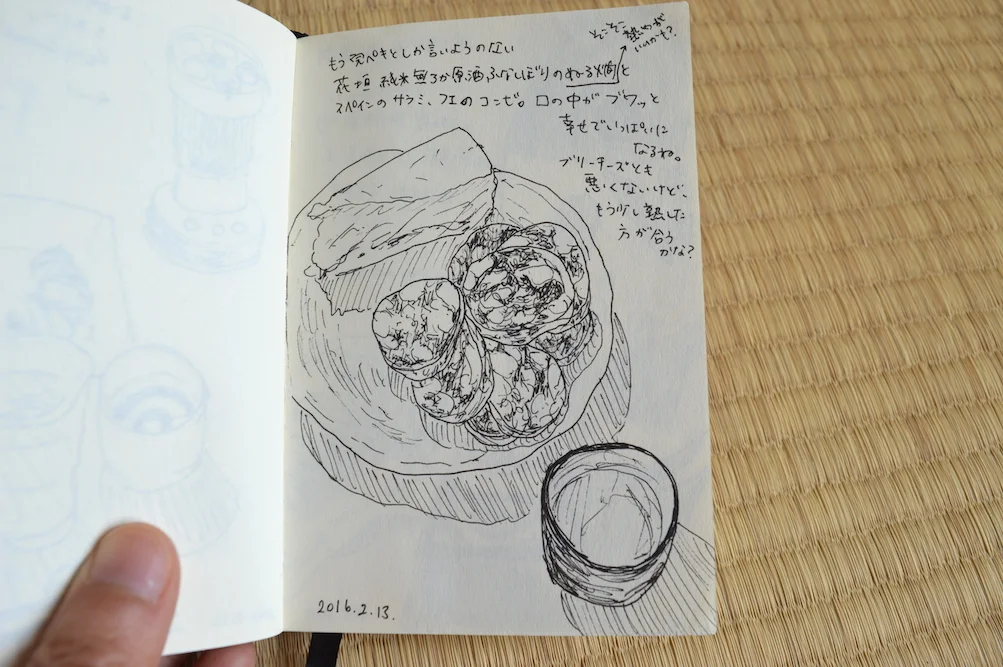 もう完ペキとしか言いようのない
花垣 純米無ろか原酒ふなしぼりのぬる燗と
スペインのサラミ、フエのコンビ。口の中がブワッと
幸せでいっぱいに
なるね。
ブリーチーズとも
悪くないけど、
もう少し熟した
方が合う
かな?
そこそこ熱めが
いいかも?
2016.2.13.